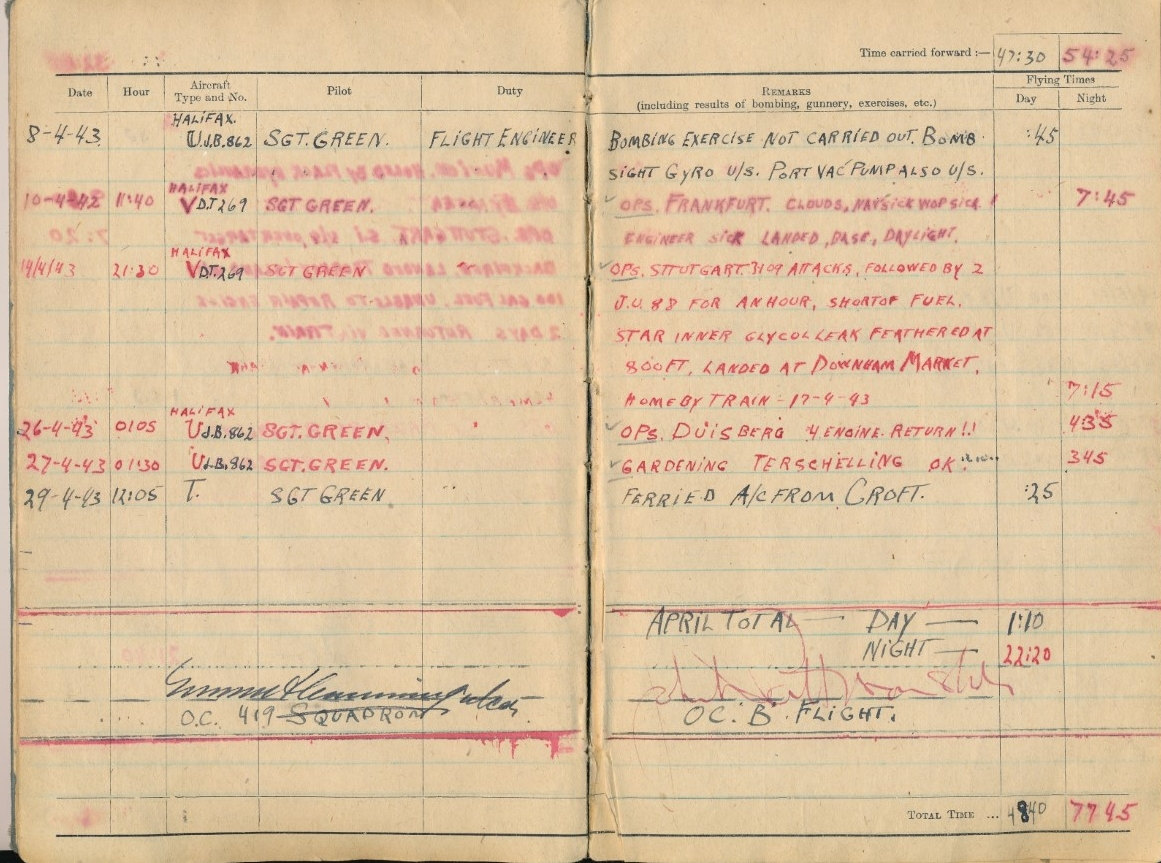 Time carried forward :— 47:30 54:25
Date Hour Aircraft Type and No. Pilot Duty REMARKS (including results of bombing, gunnery, exercises, etc.) Flying Times Day Night
HALIFAX.
8-4-43. U J.B.862 SGT. GREEN. FLIGHT ENGINEER BOMBING EXERCISE NOT CARRIED OUT. BOMB :45
SIGHT GYRO U/S. PORT VAC PUMP ALSO U/S.
HALIFAX
10-4-42 11:40 V DT269 SGT GREEN. OPS. FRANKFURT. CLOUDS, NAV SICK WOP SICK ! 7:45
ENGINEER SICK LANDED, BASE, DAYLIGHT.
HALIFAX
14/4/43 21:30 V DT.269 SGT GREEN OPS. STTUTGART. 3 109 ATTACKS, FOLLOWED BY 2
J.U. 88 FOR AN HOUR, SHORT OF FUEL.
STAR INNER GLYCOL LEAK FEATHERED AT
800 FT, LANDED AT DOWNHAM MARKET.
HOME BY TRAIN - 17-4-43 7:15
HALIFAX
26-4-43 0105 U J.B.862 SGT. GREEN. OPS. DUISBERG 4 ENGINE. RETURN!! 4:35
27-4-43 01:30 U J.B.862 SGT. GREEN. GARDENING TERSCHELLING OK 345
29-4-43 12:05 T. SGT GREEN FERRIED A/C FROM CROFT. :25
APRIL TOTAL — DAY — 1:10
NIGHT — 22:20
O.C. 419 SQUADRON OC. B. FLIGHT.
TOTAL TIME ... 4840 7745